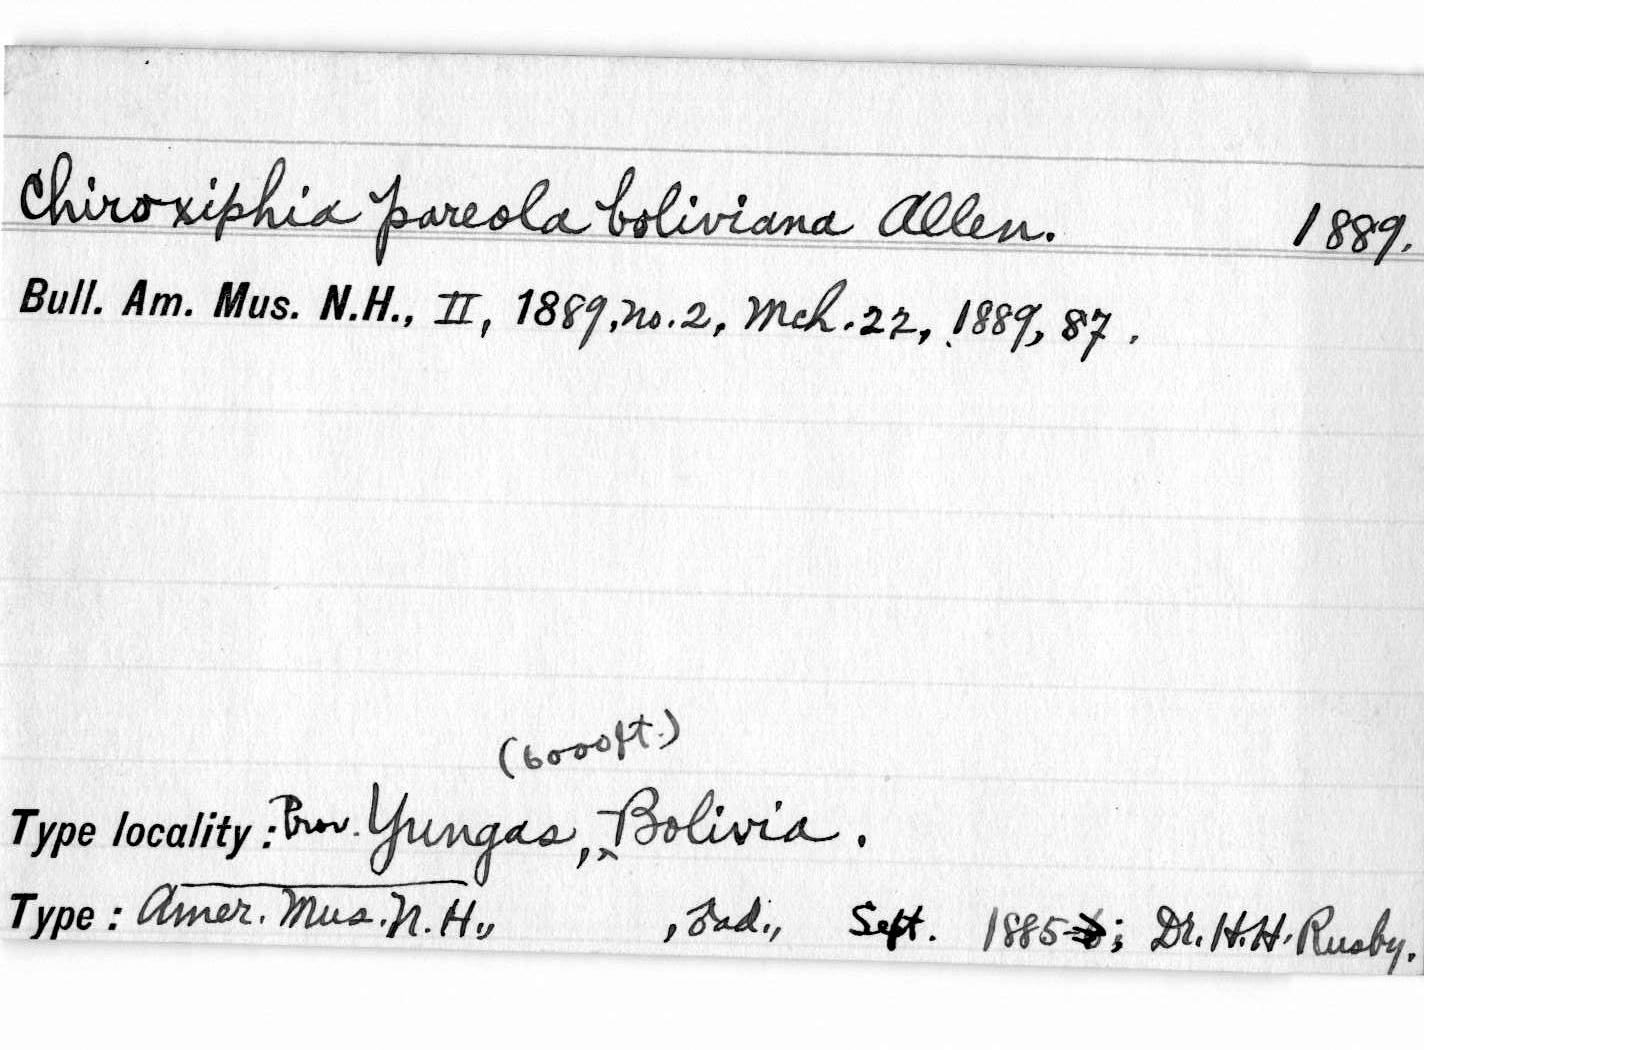 Chiroxiphia pareola boliviana Allen. 1889.
Bull. Am. Mus. N.H., II, 1889, no. 2, Mch. 22, 1889, 87.
(6000ft.)
Type locality: Prov. Yungas, Bolivia.
Type: Amer. Mus. N. H., ad., Sept. 1885; Dr. H. H. Rusby.